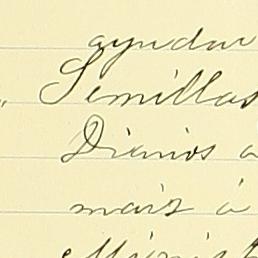 ayudar
Semillas
Diarios a
maiz á